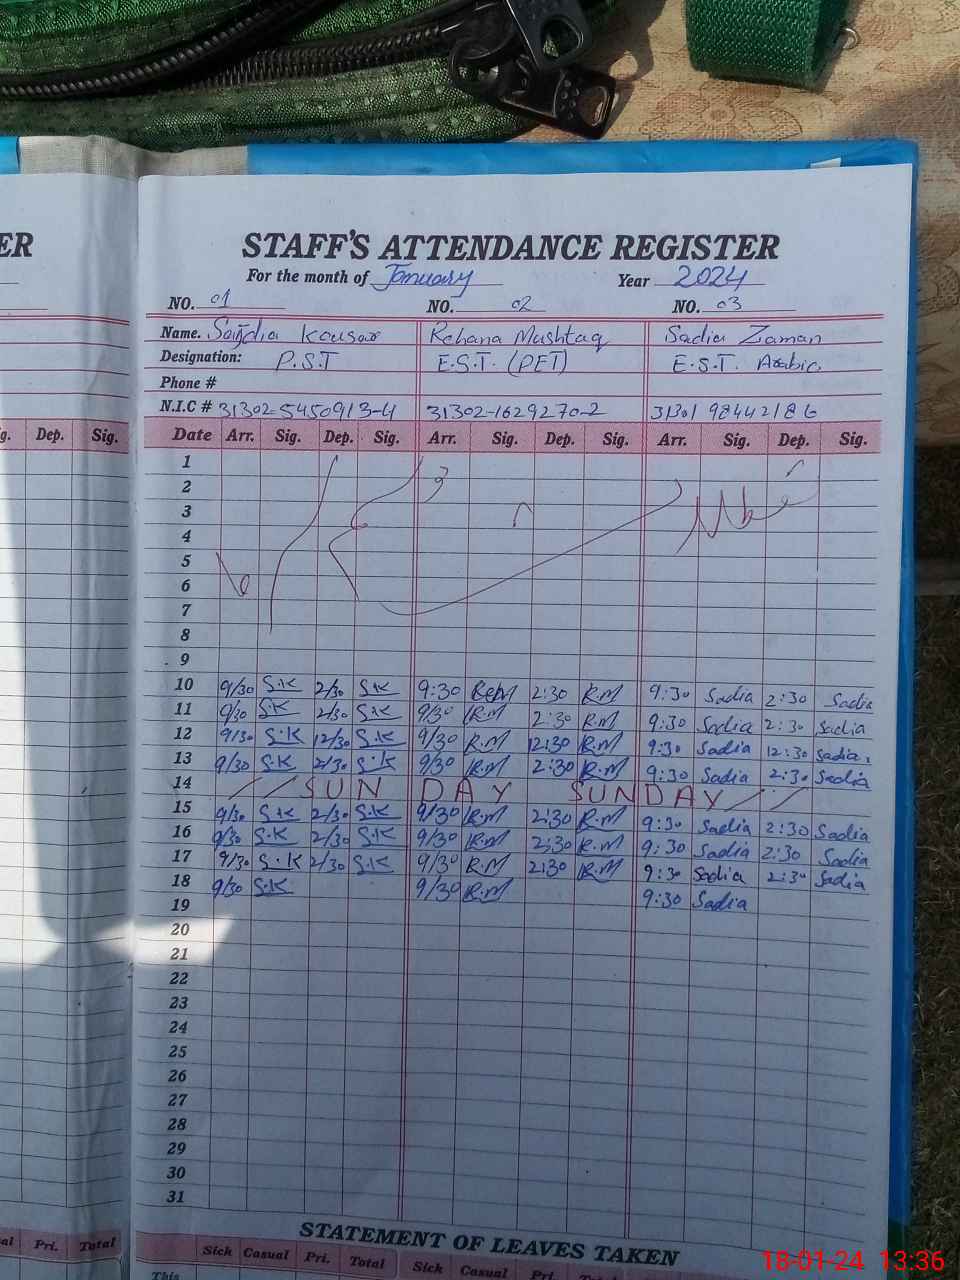 ER
STAFF'S ATTENDANCE REGISTER
For the month of January Year 2024
NO. 01 NO. 02 NO. 03
Name. Sajjdia Kousar Rehana Mushtaq Sadia Zaman
Designation: P.S.T E.S.T. (PET) E.S.T. Arabic
Phone #
N.I.C # 31302-5450913-4 31302-1629270-2 31301 98442186
g. Dep. Sig. Date Arr. Sig. Dep. Sig. Arr. Sig. Dep. Sig. Arr. Sig. Dep. Sig.
1
2
3
4
5
6
7
8
9
10 9/30 S.K 2/30 S.K 9:30 R.M 2:30 R.M 9:30 Sadia 2:30 Sadia
11 9/30 S.K 2/30 S.K 9/30 R.M 2:30 R.M 9:30 Sadia 2:30 Sadia
12 9/30 S.K 12/30 S.K 9/30 R.M 12:30 R.M 9:30 Sadia 12:30 Sadia.
13 9/30 S.K 2/30 S.K 9/30 R.M 2:30 R.M 9:30 Sadia 2:30 Sadia
14 SUN DAY SUNDAY
15 9/30 S.K 2/30 S.K 9/30 R.M 2:30 R.M 9:30 Sadia 2:30 Sadia
16 9/30 S.K 2/30 S.K 9/30 R.M 2:30 R.M 9:30 Sadia 2:30 Sadia
17 9/30 S.K 2/30 S.K 9/30 R.M 2:30 R.M 9:30 Sadia 2:30 Sadia
18 9/30 S.K 9/30 R.M 9:30 Sadia
19
20
21
22
23
24
25
26
27
28
29
30
31
STATEMENT OF LEAVES TAKEN
Pri. Total Sick Casual Pri. Total Sick Casual Pri.
This
18-01-24 13:36